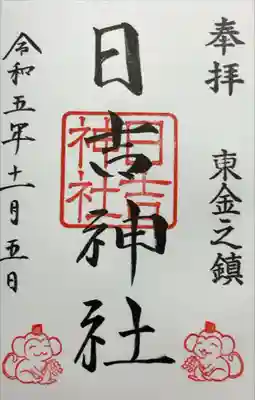 奉拝
東金之鎮
日吉神社
日吉神社
令和五年十一月五日